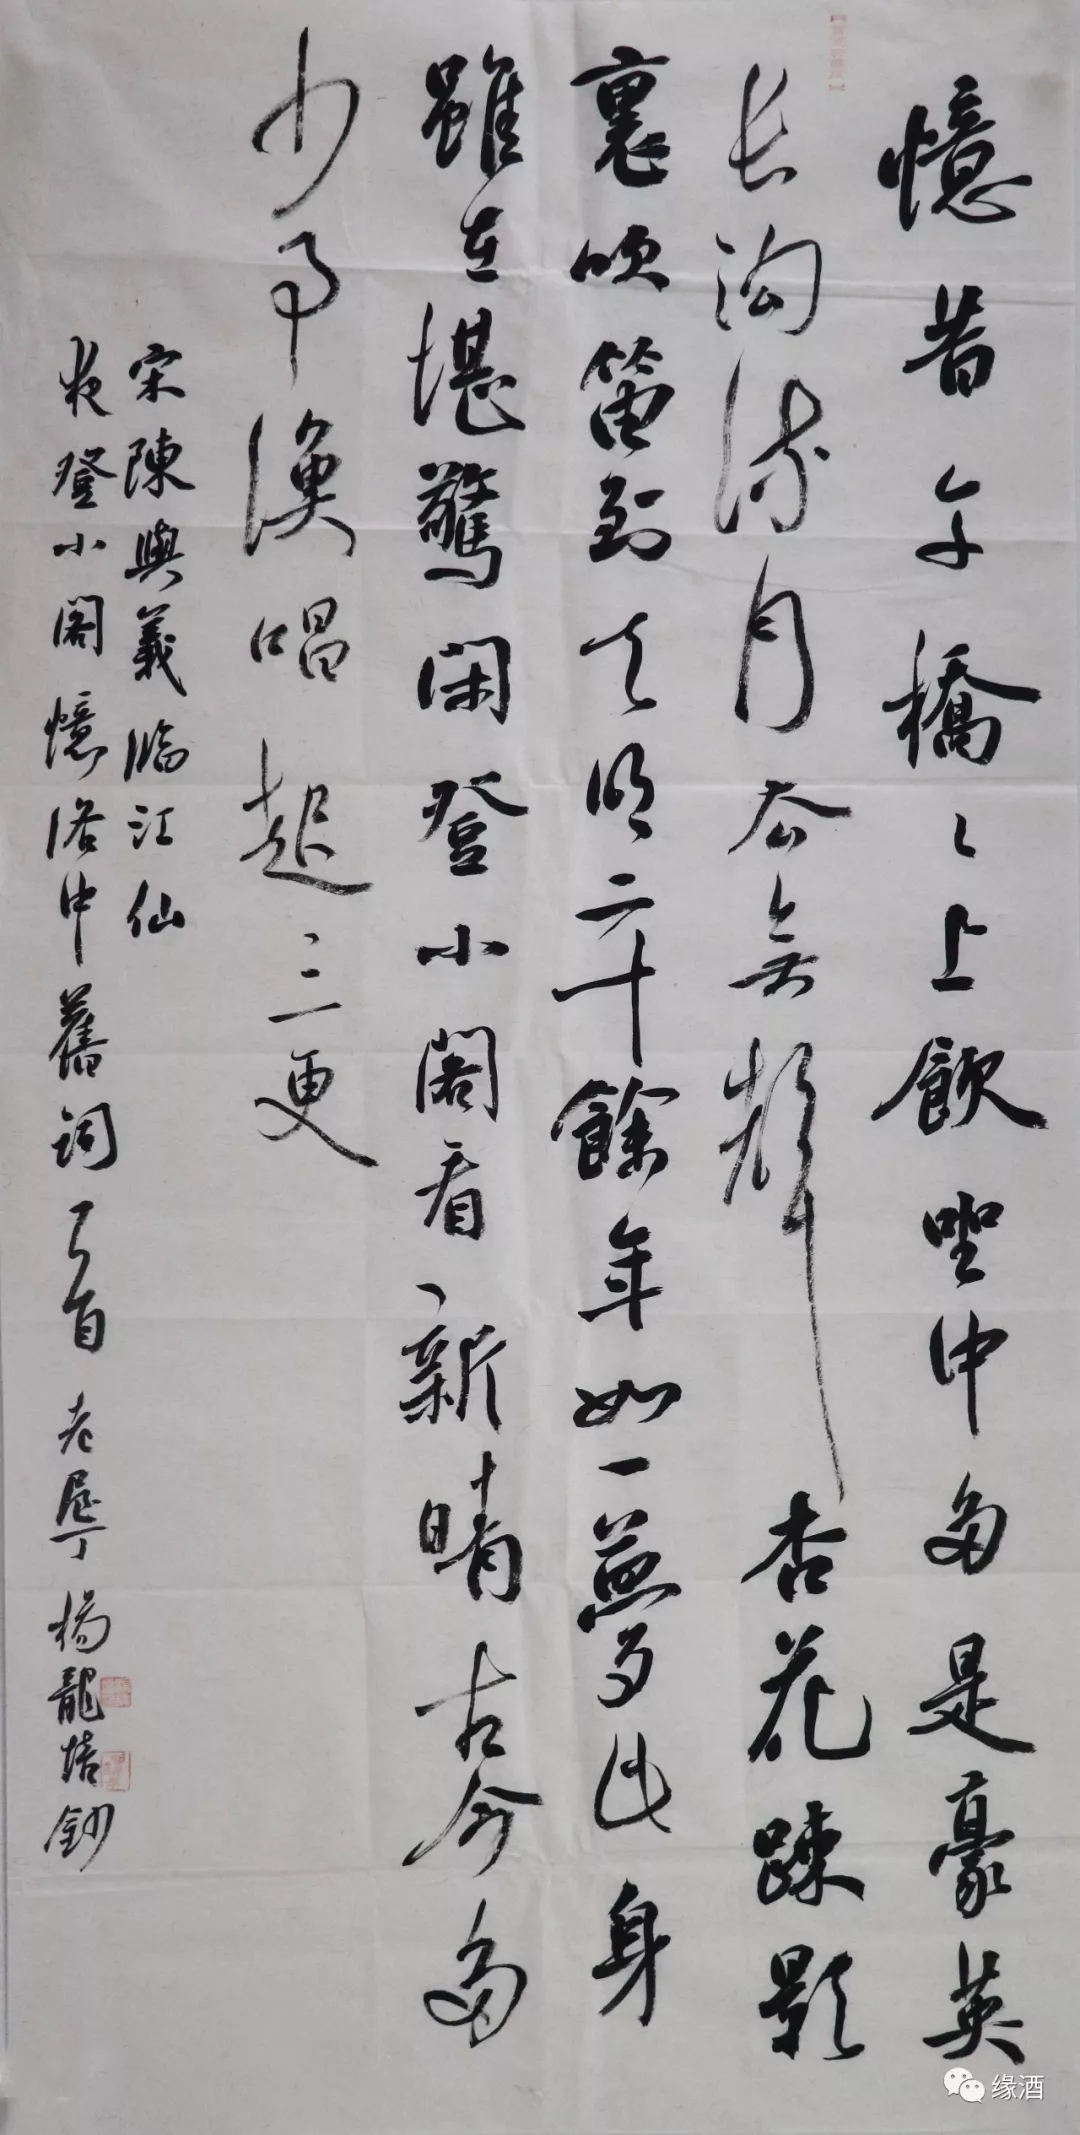 憶昔午橋〻上飲坐中多是豪英
长沟流月去無聲杏花疎影
裏吹笛到天明二十餘年如一夢此身
雖在堪驚閑登小閣看新晴古今多
少事漁唱起三更
宋陳與義臨江仙
夜登小閣憶洛中舊詞
楊龍
鈔
缘酒